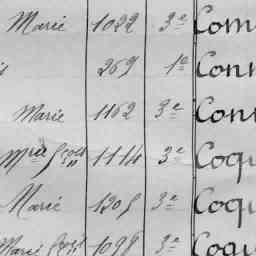 Marie 1022 3e Com
269 1e Conn
Marie 1162 3e Conn
1114 3e Coqu
Marie 1305 3e Coqu
Marie 1098 3e Coqu